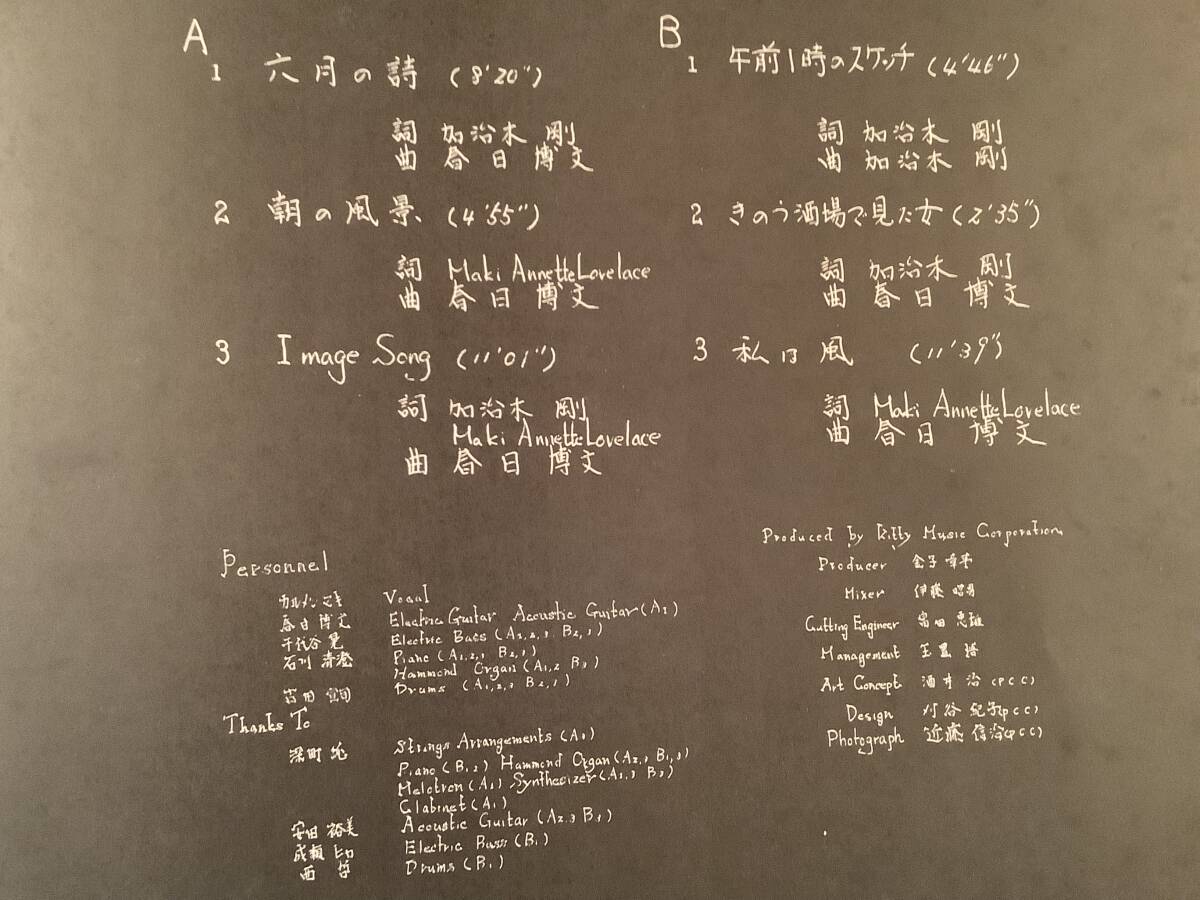 A
1 六月の詩 (8'20")
詞 加治木 剛
曲 春日 博文
2 朝の風景 (4'55")
詞 Maki Annette Lovelace
曲 春日 博文
3 Image Song (11'01")
詞 加治木 剛
Maki Annette Lovelace
曲 春日 博文
B
1 午前1時のスケッチ (4'46")
詞 加治木 剛
曲 加治木 剛
2 きのう酒場で見た女 (2'35")
詞 加治木 剛
曲 春日 博文
3 私は風 (11'39")
詞 Maki Annette Lovelace
曲 春日 博文
Personnel
カルメン マキ Vocal
春日 博文 Electric Guitar Acoustic Guitar
千代谷 晃 Electric Bass
石川 清澄 Piano
Hammond Organ
Drums
Thanks To
深町 純 Strings Arrangements
Piano Hammond Organ
Melotron Synthesizer
Clabinet (A1)
安田 裕美 Acoustic Guitar
成瀬 ヒロ Electric Bass (B1)
西 哲 Drums (B1)
Produced by Kitty Music Corporation
Producer 金子 章平
Mixer 伊藤
Cutting Engineer 恵雄
Management
Art Concept 酒井 治 (PCC)
Design 刈谷 (PCC)
Photograph 近藤 信治 (PCC)